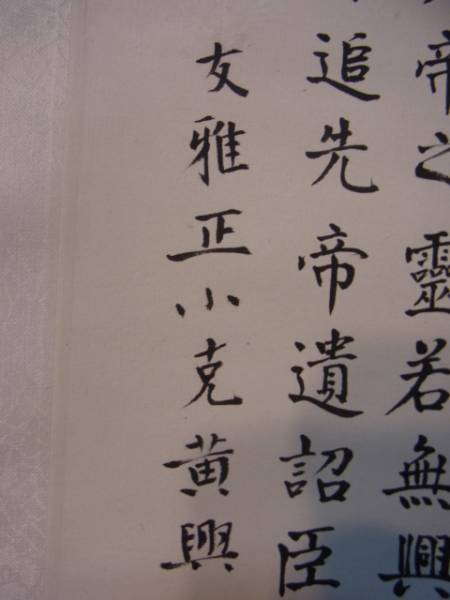 帝之靈若無興
追先帝遺詔臣
友雅正小克黄興